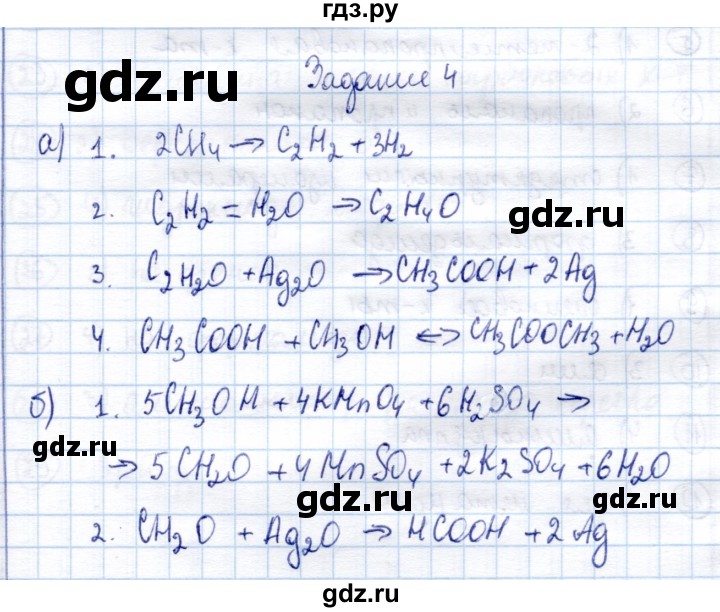 гдз.ру
Задание 4
gdz.ru
а) 1. 2CH4 → C2H2 + 3H2
2. C2H2 = H2O → C2H4O
gdz.ru
3. C2H2O + Ag2O → CH3COOH + 2Ag
4. CH3COOH + CH3OH ↔ CH3COOCH3 + H2O
б) 1. 5CH3OH + 4KMnO4 + 6H2SO4 →
gdz.ru
→ 5CH2O + 4MnSO4 + 2K2SO4 + 6H2O
gdz.ru
2. CH2O + Ag2O → HCOOH + 2Ag
gdz.ru